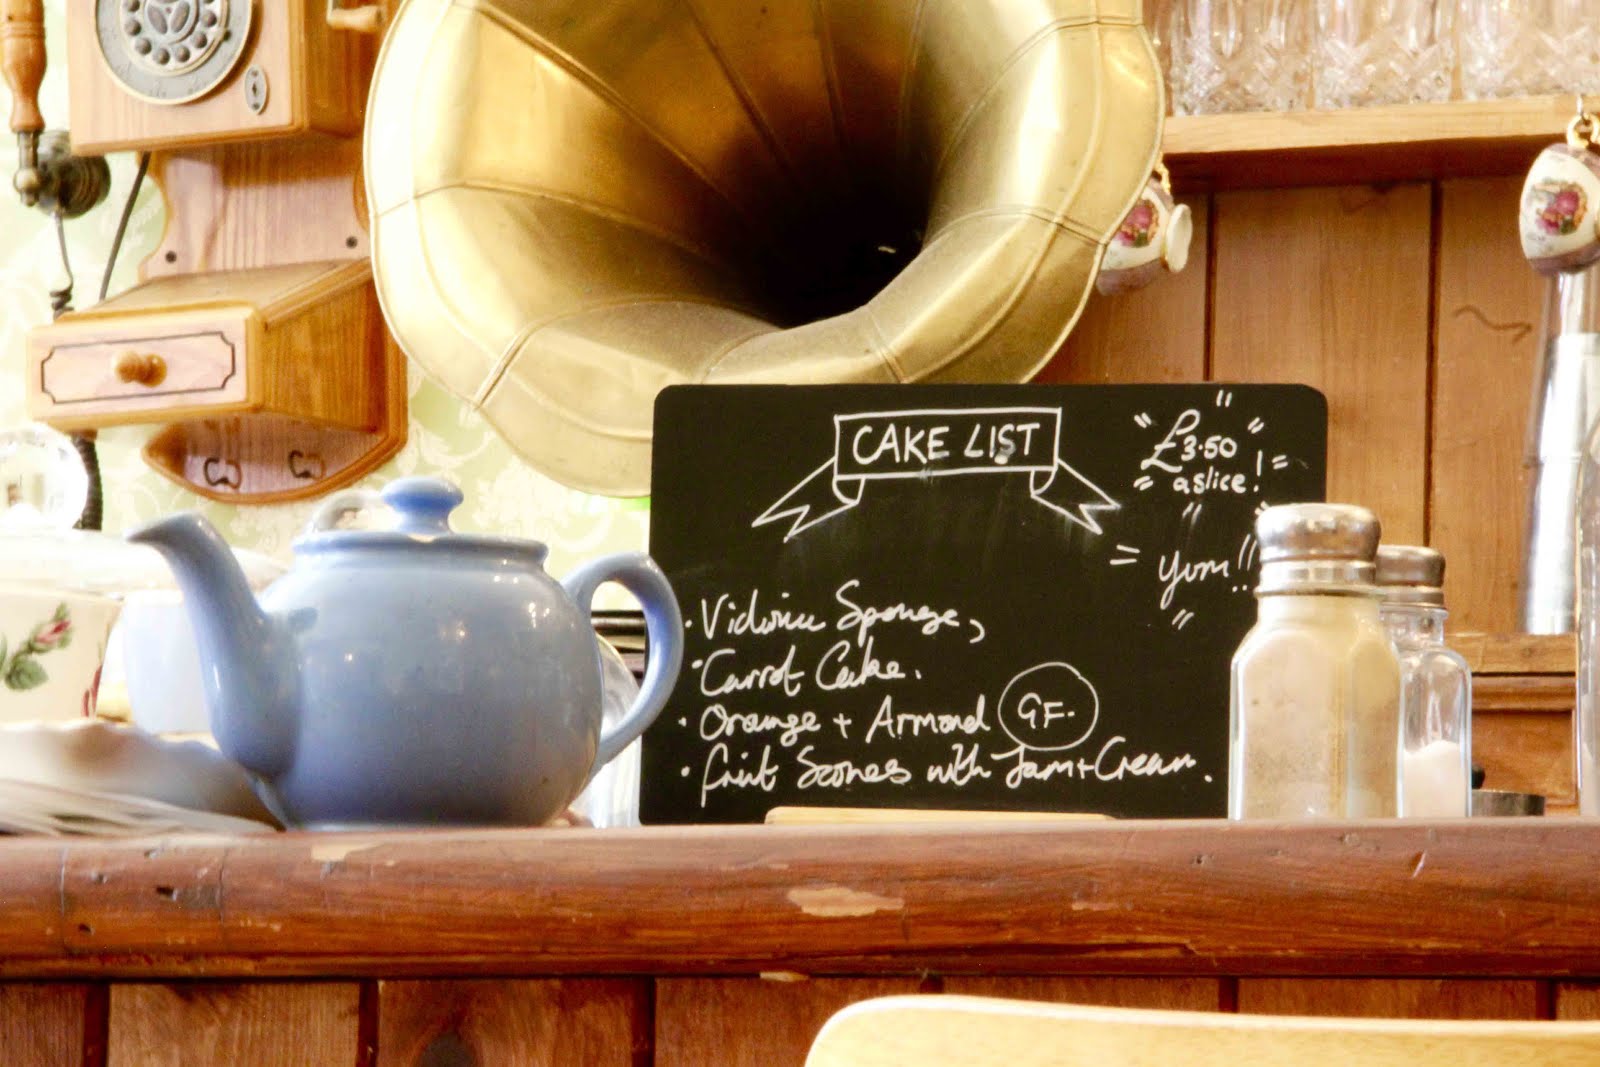 CAKE LIST
£3.50
a slice!
Yum!!
• Victoria Sponge,
• Carrot Cake.
• Orange + Armond GF.
• Fruit Scones with Jam + Cream.